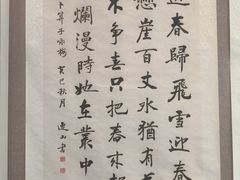 春歸飛雪迎春
懸崖百丈冰猶有
不爭春只把春來報
爛漫時她在叢中
卜算子詠梅 癸巳秋月 書